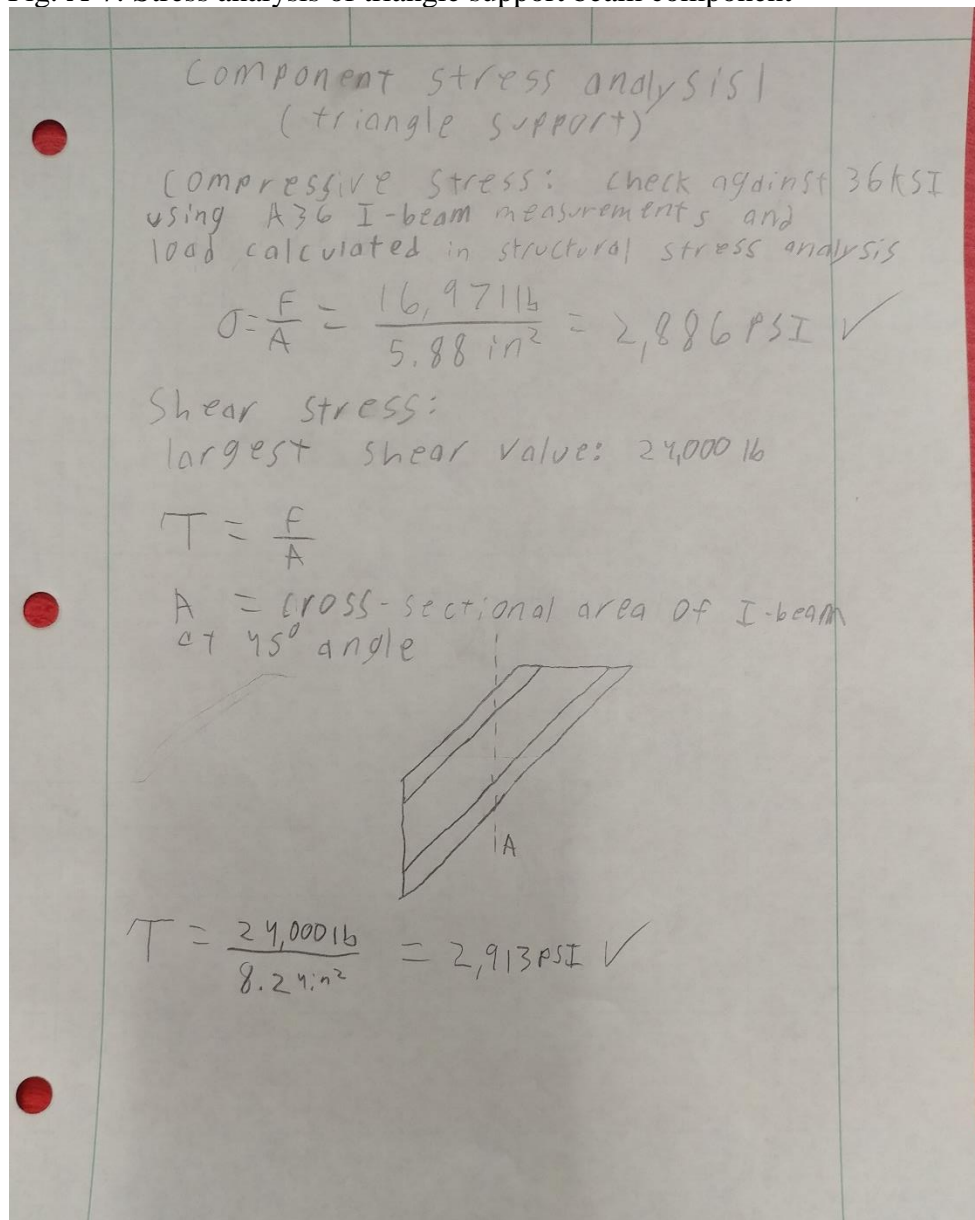 Fig. A-7: Stress analysis of triangle support beam component
Component stress analysis
(triangle support)
Compressive stress: check against 36KSI
using A36 I-beam measurements and
load calculated in structural stress analysis
σ = F/A = 16,971lb/5.88 in² = 2,886 PSI ✓
Shear stress:
largest shear value: 24,000 lb
τ = F/A
A = cross-sectional area of I-beam
at 45° angle
A
τ = 24,000lb/8.24in² = 2,913PSI ✓